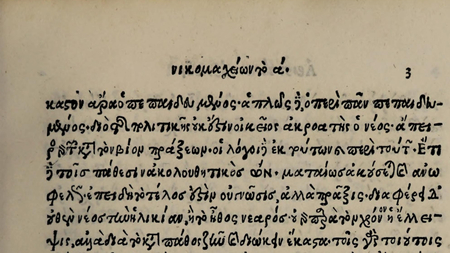 νικομαχείων τὸ ά. 3
καστον ἄρα ὁ πεπαιδευμένος. ἁπλῶς δὲ, ὁ περὶ πᾶν πεπαιδευ-
μένος. διὸ τῆς πολιτικῆς οὐκ ἔστιν οἰκεῖος ἀκροατὴς ὁ νέος. ἄπει-
ρος γὰρ τῶν κατὰ τὸν βίον πράξεων. οἱ λόγοι δ' ἐκ τούτων καὶ περὶ τούτων. ἔτι
δὲ τοῖς πάθεσιν ἀκολουθητικὸς ὢν. ματαίως ἀκούσεται καὶ ἀνω
φελῶς. ἐπειδὴ τὸ τέλος ἐστὶν οὐ γνῶσις, ἀλλὰ πρᾶξις. διαφέρει δ'
οὐθὲν νέος τὴν ἡλικίαν, ἢ τὸ ἦθος νεαρός. οὐ γὰρ παρὰ τὸν χρόνον ἡ ἔλλει-
ψις, ἀλλὰ διὰ τὸ κατὰ πάθος ζῆν καὶ διώκειν ἕκαστα. τοῖς γὰρ τοιούτοις